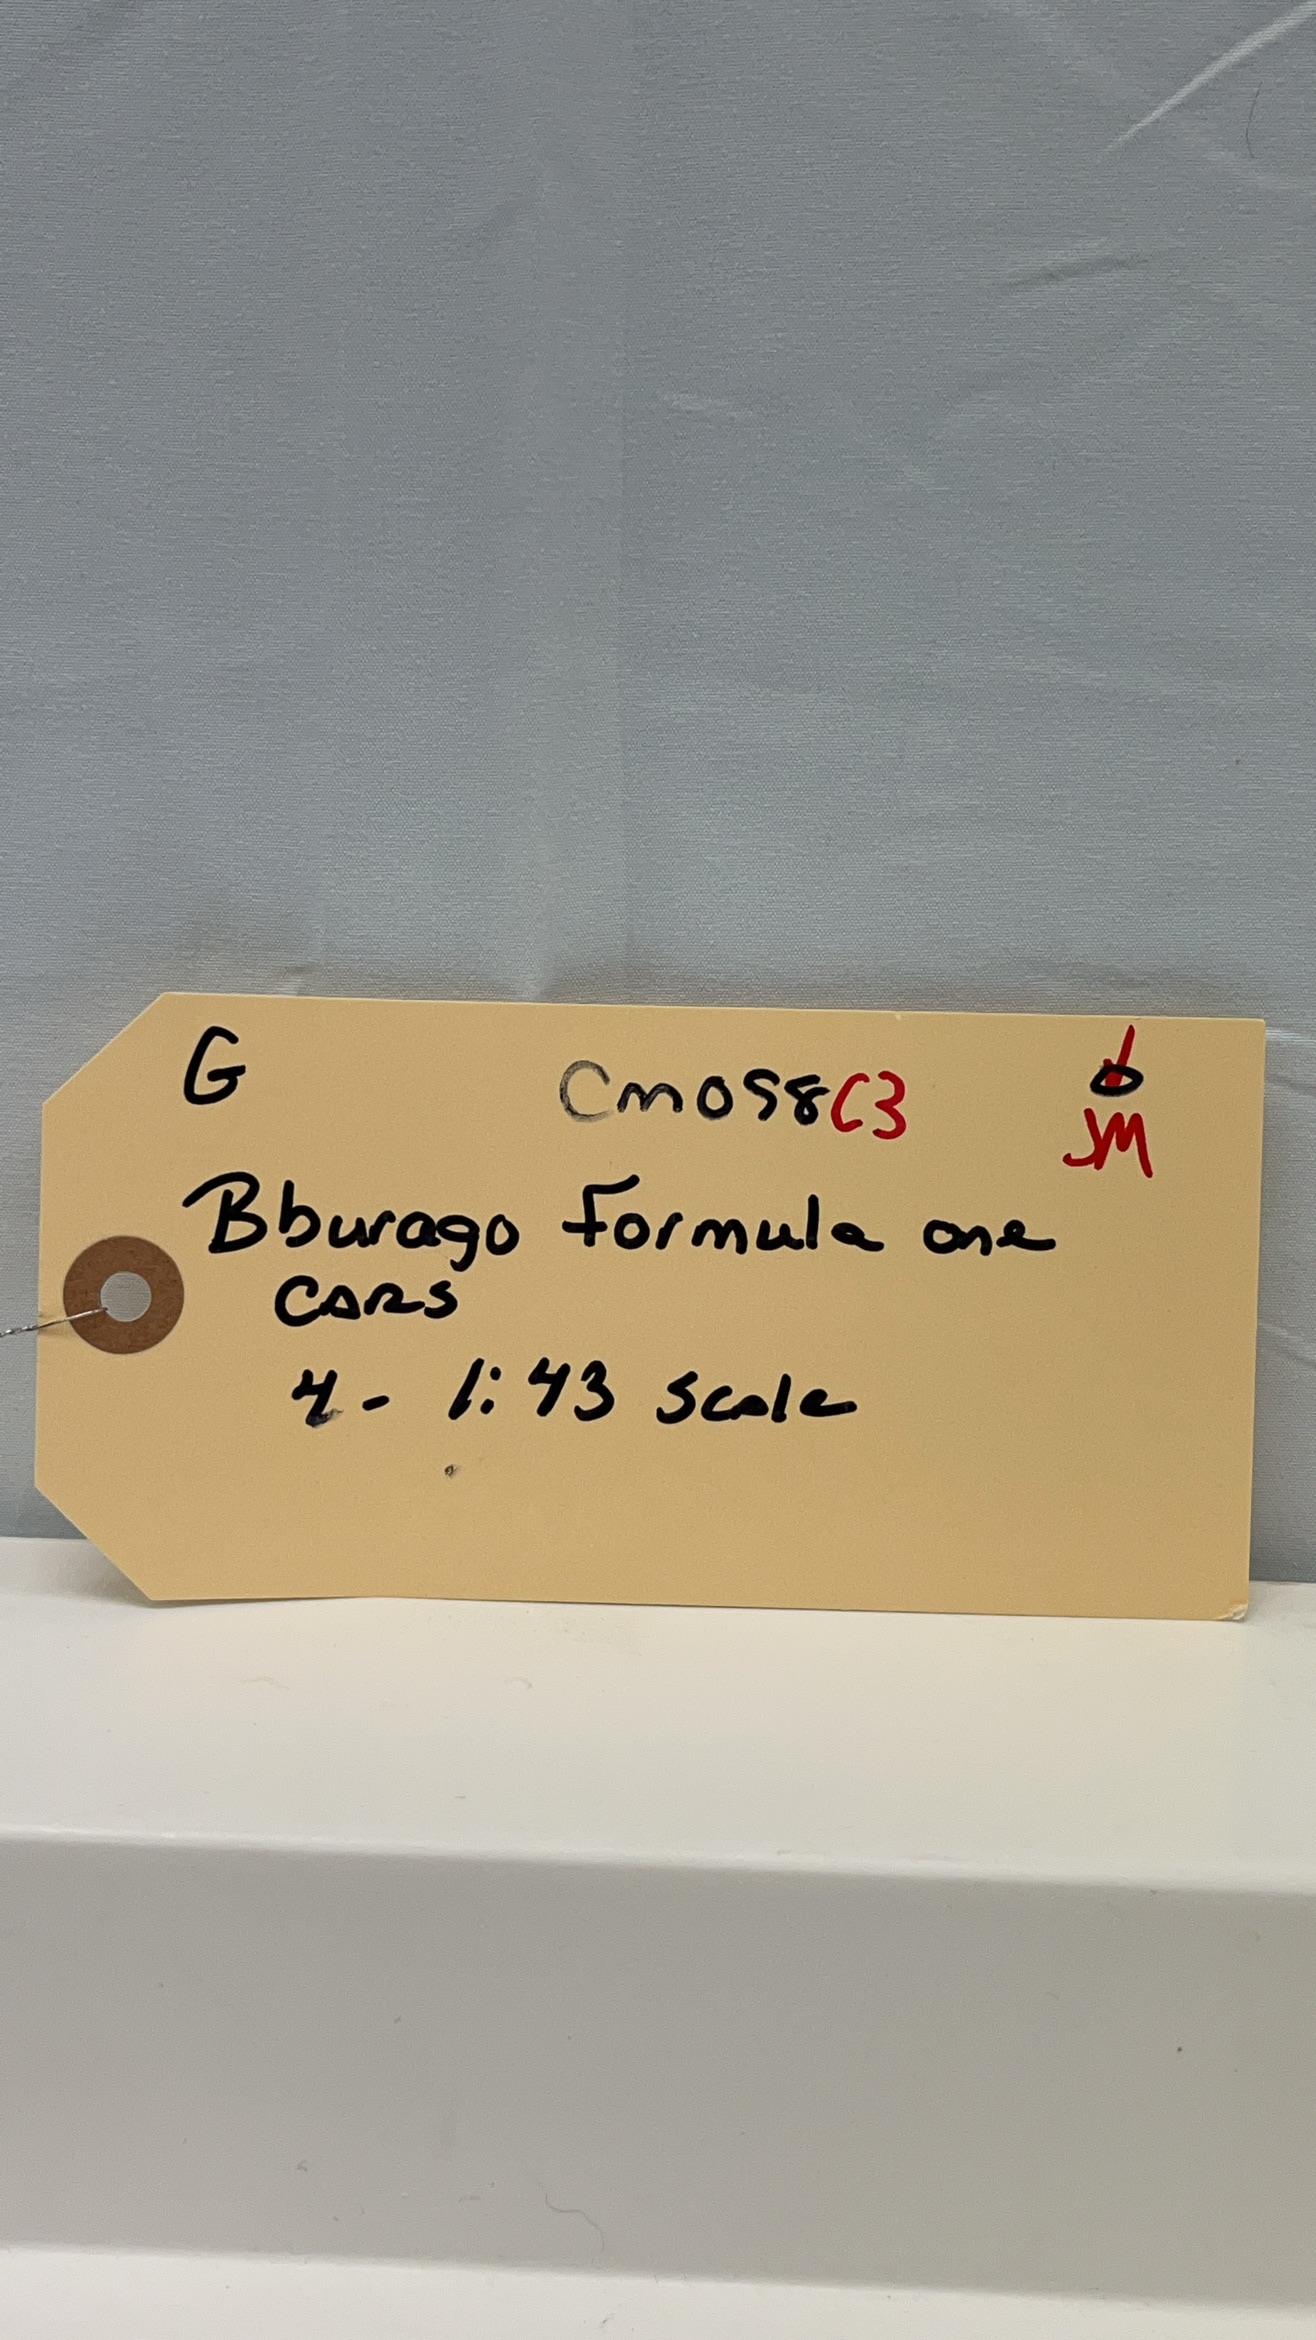 G Cm098C3
JM
Bburago Formula one
CARS
4- 1:43 Scale